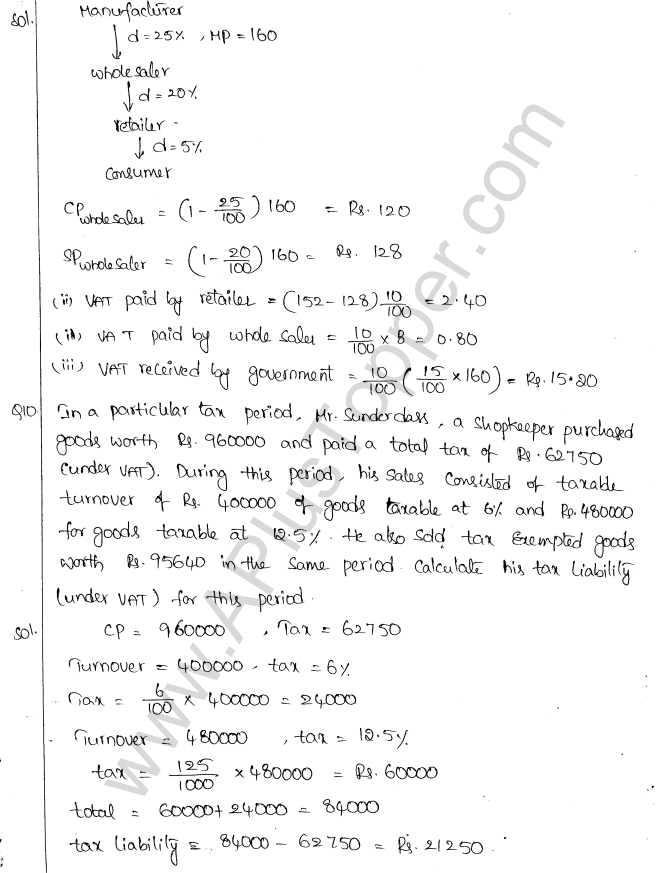 Sol. Manufacturer
↓ d=25% , MP=160
wholesaler
↓ d=20%
retailer
↓ d=5%
Consumer
CP wholesaler = (1 - 25/100) 160 = Rs. 120
SP wholesaler = (1 - 20/100) 160 = Rs. 128
(ii) VAT paid by retailer = (152-128) 10/100 = 2.40
(ii) VAT paid by whole saler = 10/100 × 8 = 0.80
(iii) VAT received by government = 10/100 (15/100 × 160) = Rs. 15.20
Q10. In a particular tax period, Mr. Sunderdass, a shopkeeper purchased
goods worth Rs. 960000 and paid a total tax of Rs. 62750
(under VAT). During this period, his sales consisted of taxable
turnover of Rs. 400000 of goods taxable at 6% and Rs. 480000
for goods taxable at 12.5%. He also sold tax Exempted goods
worth Rs. 95640 in the same period. Calculate his tax liability
(under VAT) for this period.
Sol. CP = 960000 , Tax = 62750
Turnover = 400000 . tax = 6%
Tax = 6/100 × 400000 = 24000
Turnover = 480000 , tax = 12.5%
tax = 125/1000 × 480000 = Rs. 60000
total = 60000 + 24000 = 84000
tax liability = 84000 - 62750 = Rs. 21250.
www.APlusTopper.com